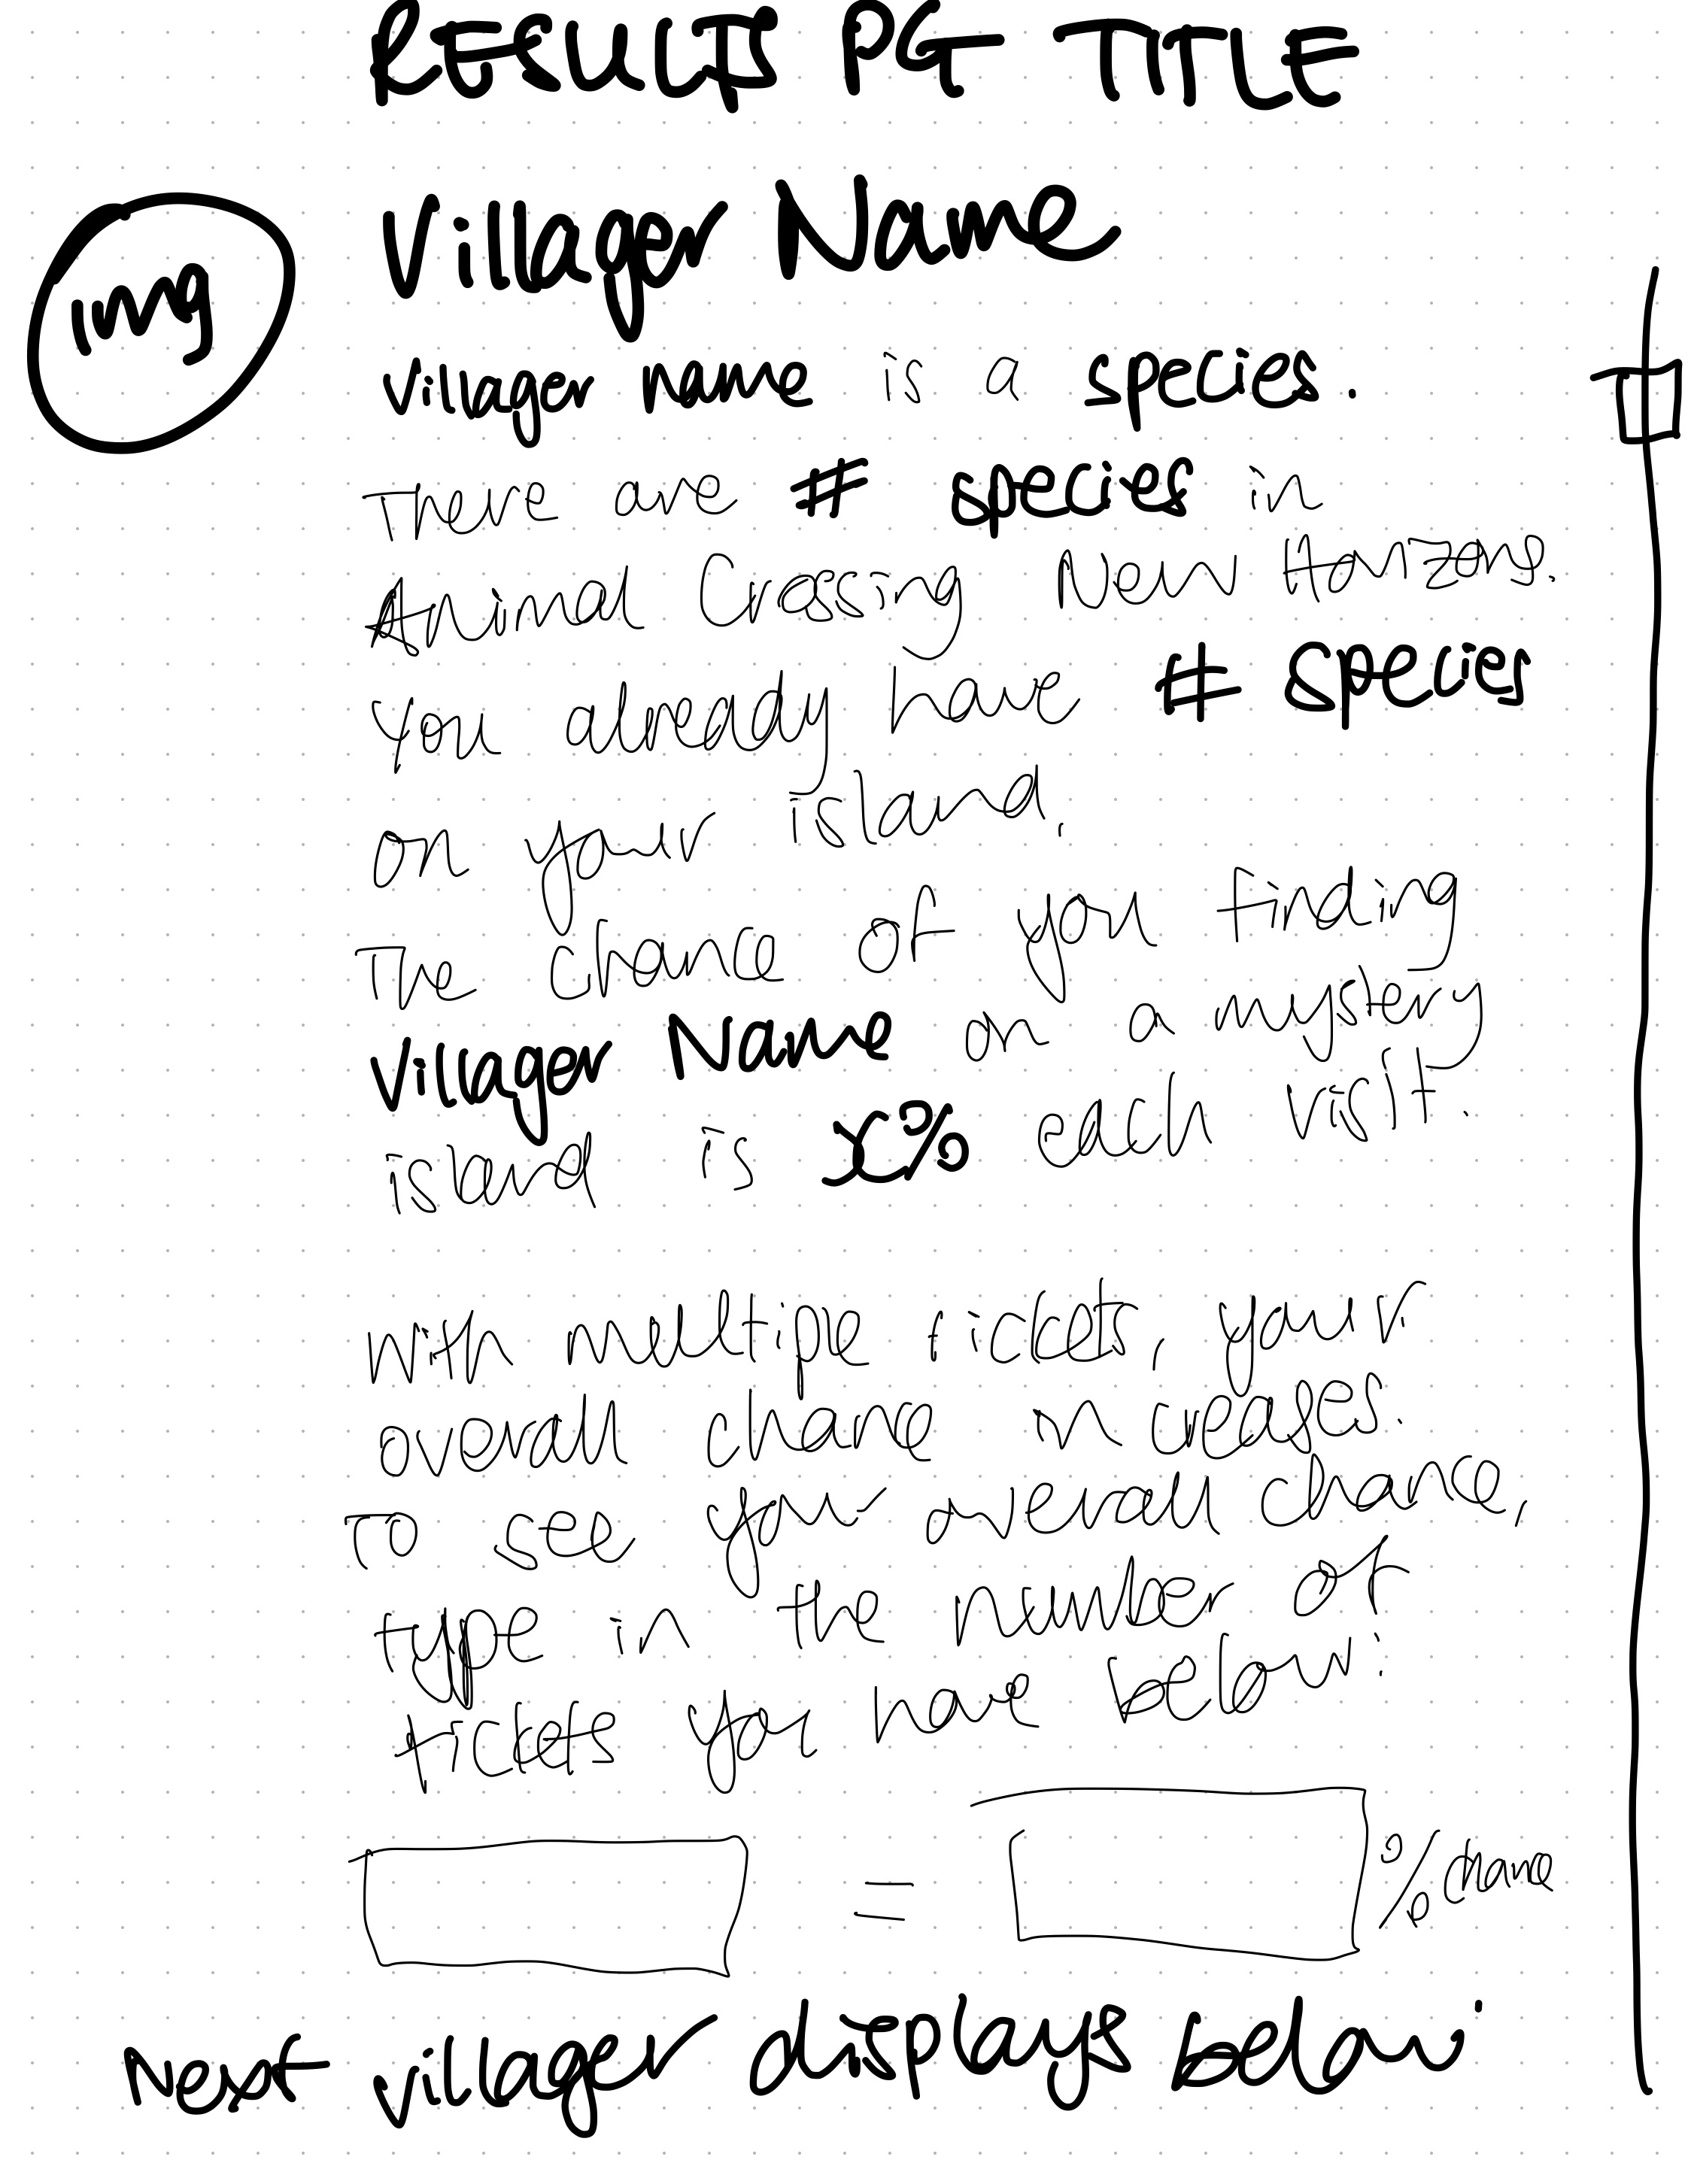 RESULTS PG TITLE
img
Villager Name
Villager name is a species.
There are # species in
Animal Crossing New Horizons.
You already have # species
on your island.
The chance of you finding
Villager Name on a mystery
island is X% each visit.
With multipe tickets, your
overall chance increases.
To see your overall chance,
type in the number of
tickets you have below:
= % chance
Next villager displays below